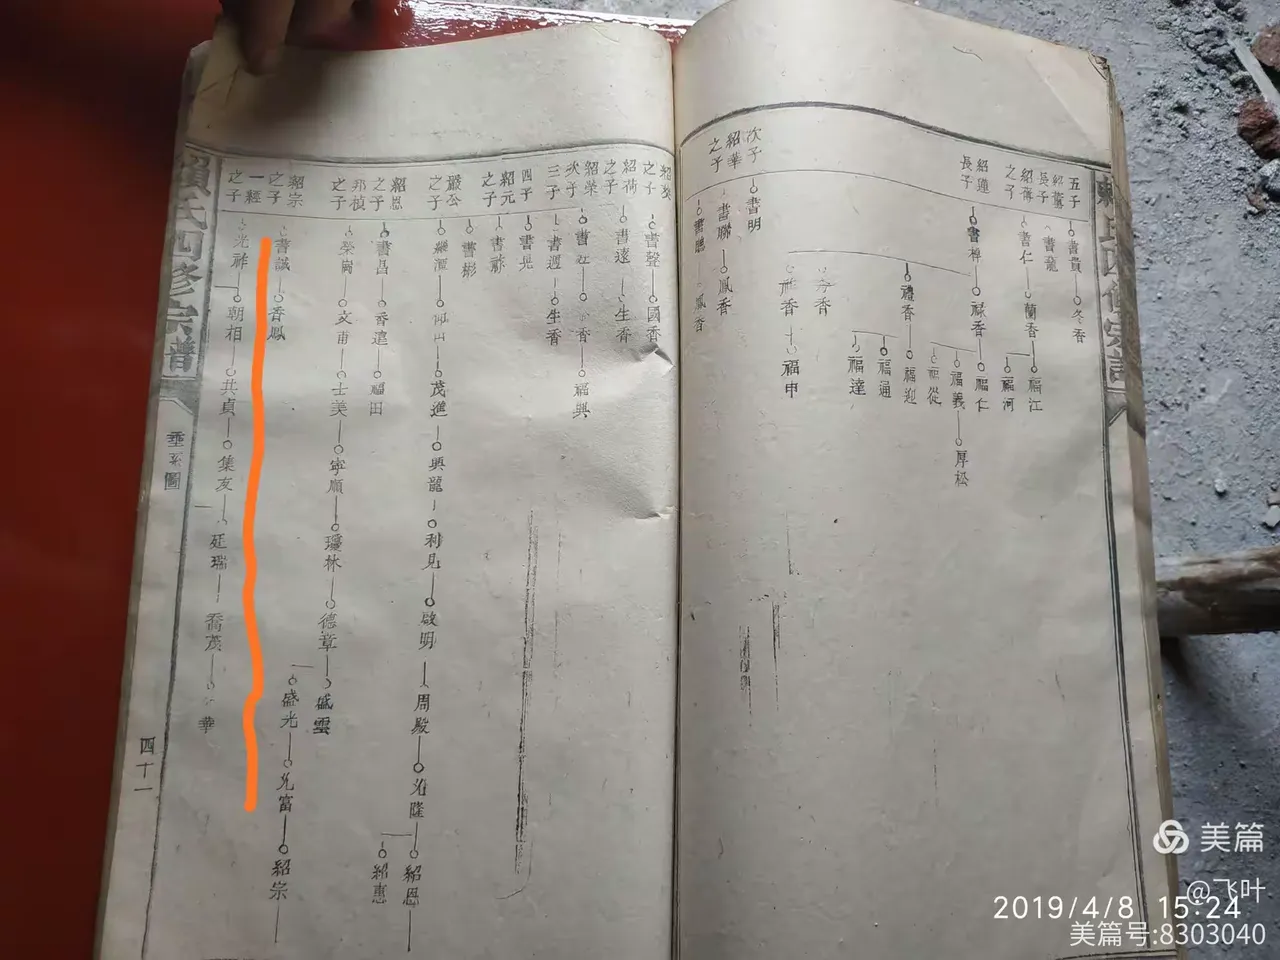 五子
紹籌
長子
書貴
冬香
書龍
紹籌
之子
書仁
蘭香
福江
福河
紹蓮
長子
書樟
祿香
福仁
福義
厚松
福從
禮香
福迎
福通
福達
次子
紹華
之子
書明
福申
書聯
鳳香
書聰
鳳香
之子
書聲
國香
紹荷
之子
書遠
生香
紹榮
次子
書江
香
紹興
三子
書週
生香
四子
書晃
紹元
之子
書彬
嚴公
之子
茂進
興龍
利見
啟明
周殿
允隆
紹恩
紹惠
紹恩
之子
書昌
香遠
福田
邦楨
之子
榮崗
文甫
士美
寧順
瓊林
德章
盛雲
盛光
允富
紹宗
紹宗
之子
書誠
香鳳
一經
之子
光祚
朝相
共貞
集友
廷瑞
喬茂
華
賴氏四修宗譜
垂系圖
四十一
美篇
@飞叶
2019/4/8 15:24
美篇号:8303040